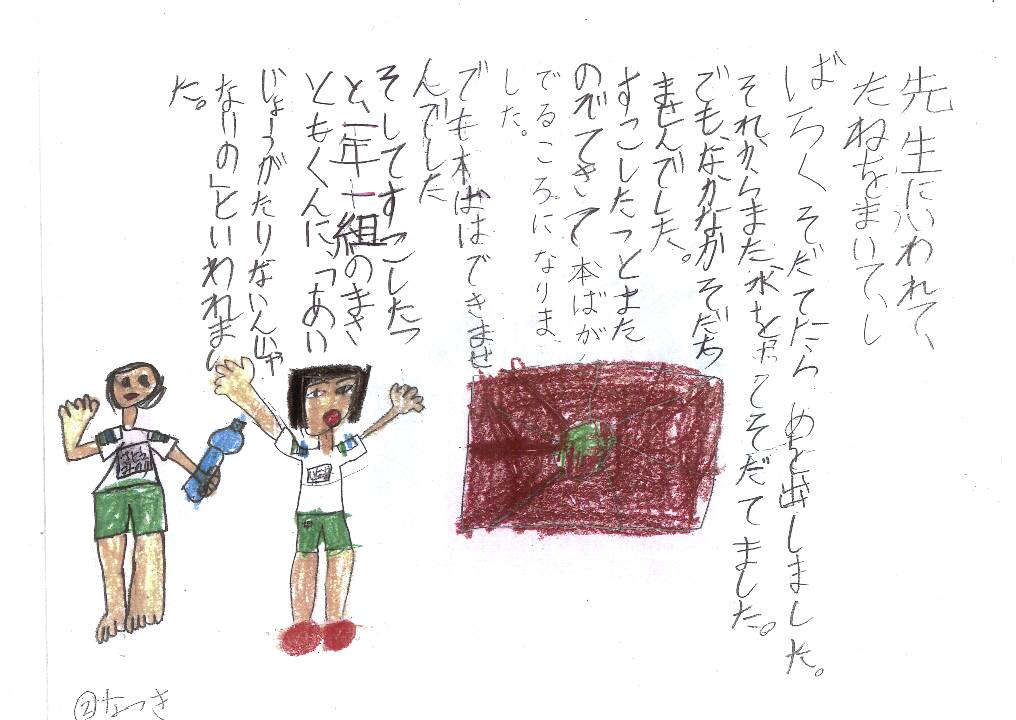 先生にいわれて、
たねをまいて、し
ばらくそだてたら めを出しました。
それからまた水をやってそだてました。
でも、なかなかそだち
ませんでした。
すこしたっとまた
のでてきて本ばが
でるころになりま
した。
でも本ばはできませ
んでした
そしてすこしたつ
と、一年一組のまさ
ともくんに、「あい
じょうがたりないんじゃ
ないの」といわれまし
た。
②なつき